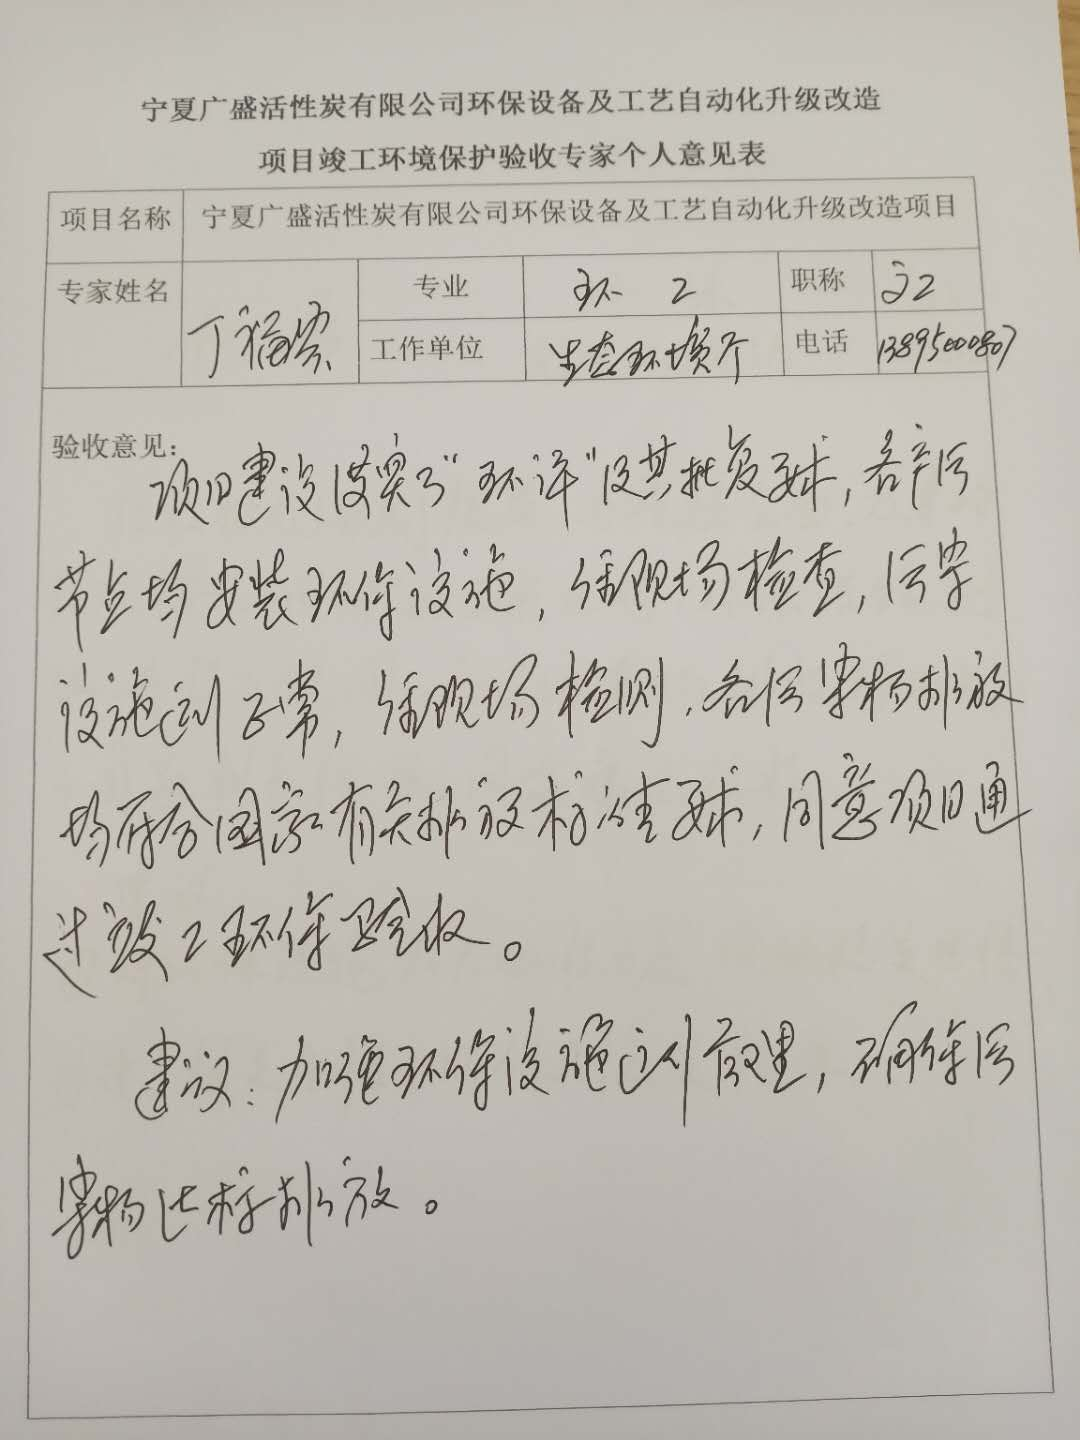 宁夏广盛活性炭有限公司环保设备及工艺自动化升级改造
项目竣工环境保护验收专家个人意见表
项目名称 宁夏广盛活性炭有限公司环保设备及工艺自动化升级改造项目
专家姓名 丁福 专业 环工 职称 高工
工作单位 生态环境厅 电话 13895000807
验收意见：
项目建设落实了“环评”及其批复要求，各产污
节点均安装环保设施，经现场检查，污染
设施运行正常，经现场检测，各污染物排放
均符合国家有关排放标准要求，同意项目通
过竣工环保验收。
建议：加强环保设施运行管理，确保污
染物达标排放。